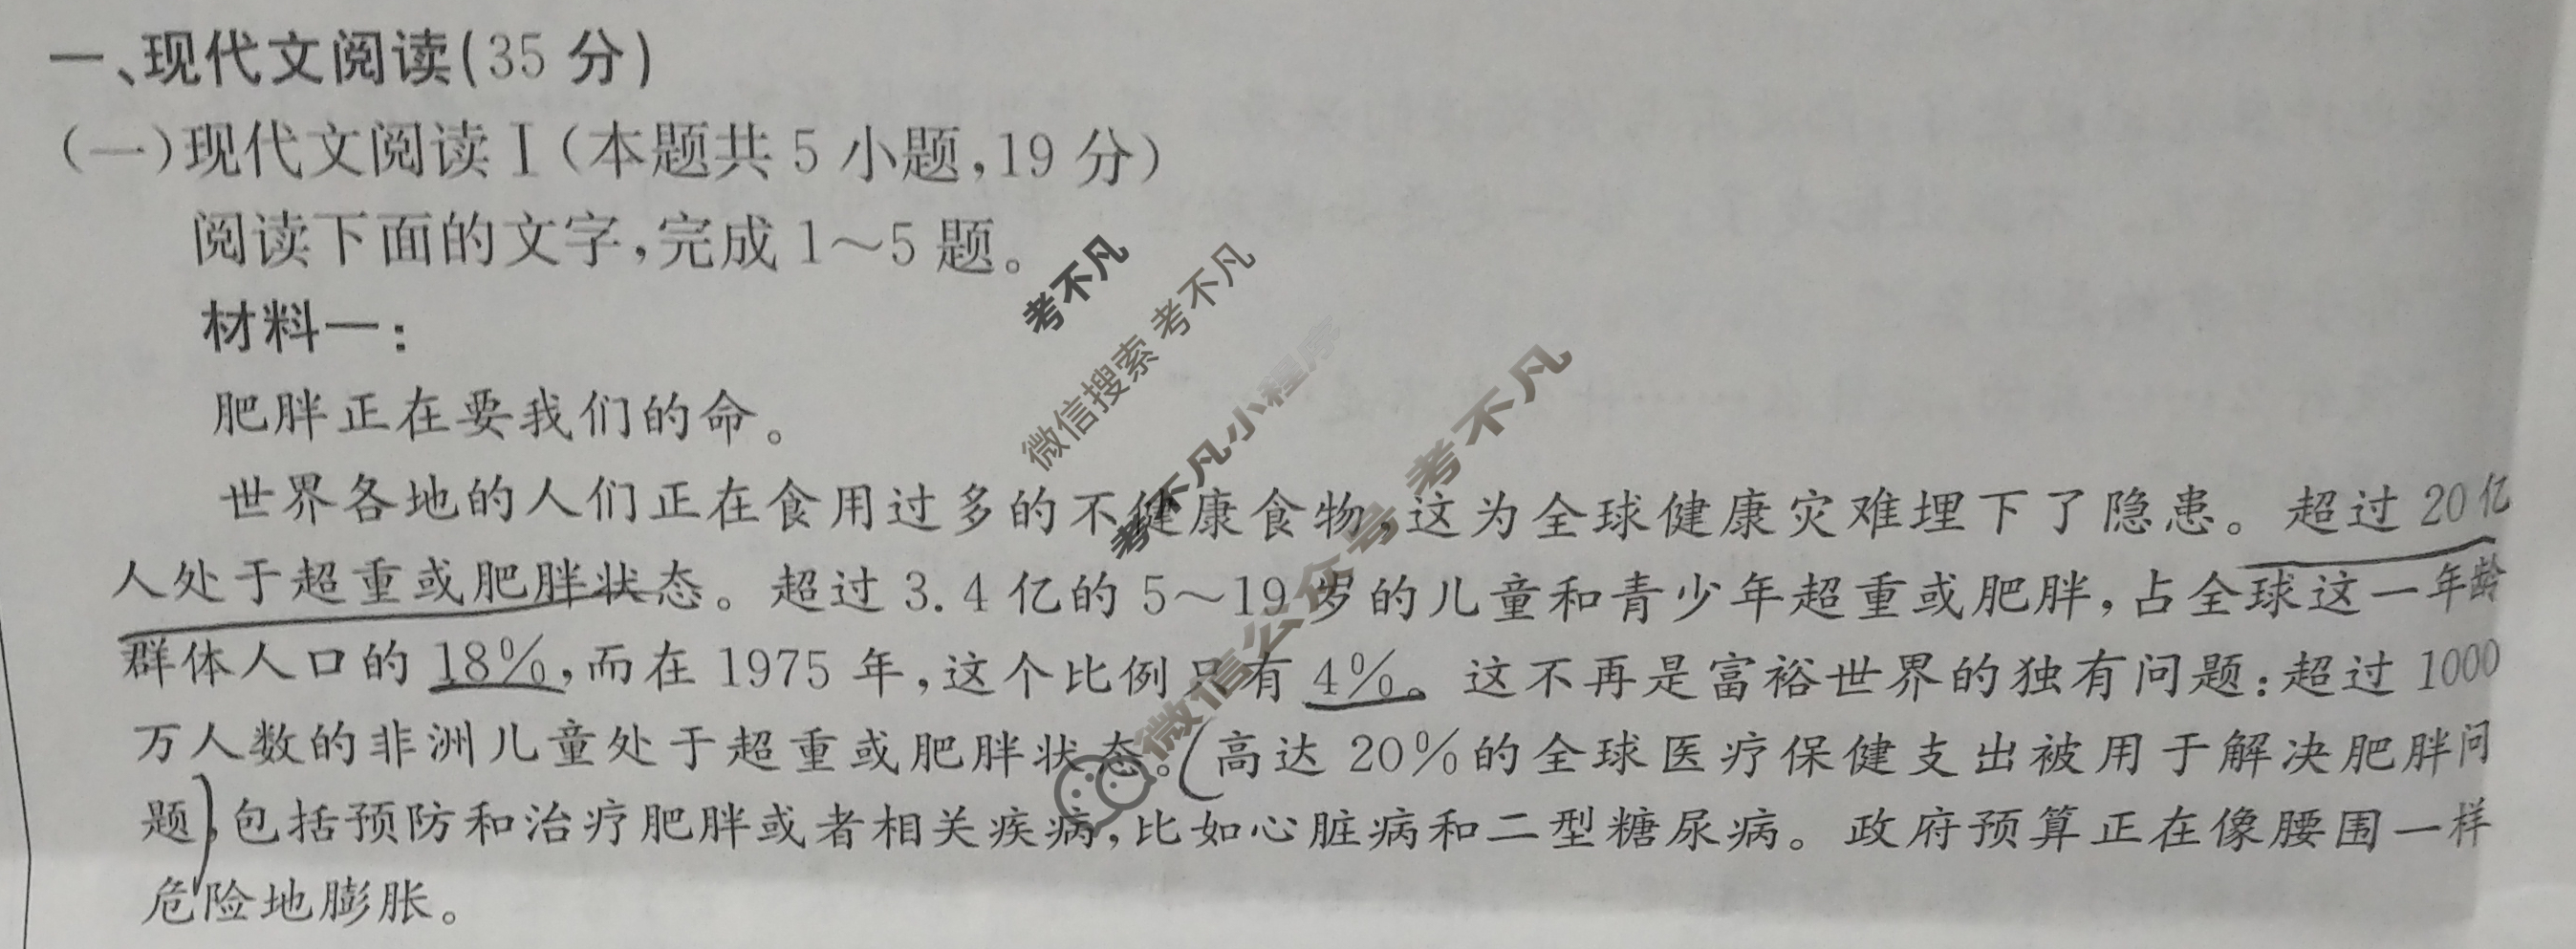 一、现代文阅读(35 分)
(一)现代文阅读Ⅰ(本题共 5 小题,19 分)
阅读下面的文字,完成 1～5 题。
材料一:
肥胖正在要我们的命。
世界各地的人们正在食用过多的不健康食物,这为全球健康灾难埋下了隐患。超过 20 亿
人处于超重或肥胖状态。超过 3.4 亿的 5～19 岁的儿童和青少年超重或肥胖,占全球这一年龄
群体人口的 18%,而在 1975 年,这个比例只有 4%。这不再是富裕世界的独有问题:超过 1000
万人数的非洲儿童处于超重或肥胖状态。高达 20%的全球医疗保健支出被用于解决肥胖问
题,包括预防和治疗肥胖或者相关疾病,比如心脏病和二型糖尿病。政府预算正在像腰围一样
危险地膨胀。
考不凡
微信搜索 考不凡
考不凡小程序
微信公众号 考不凡